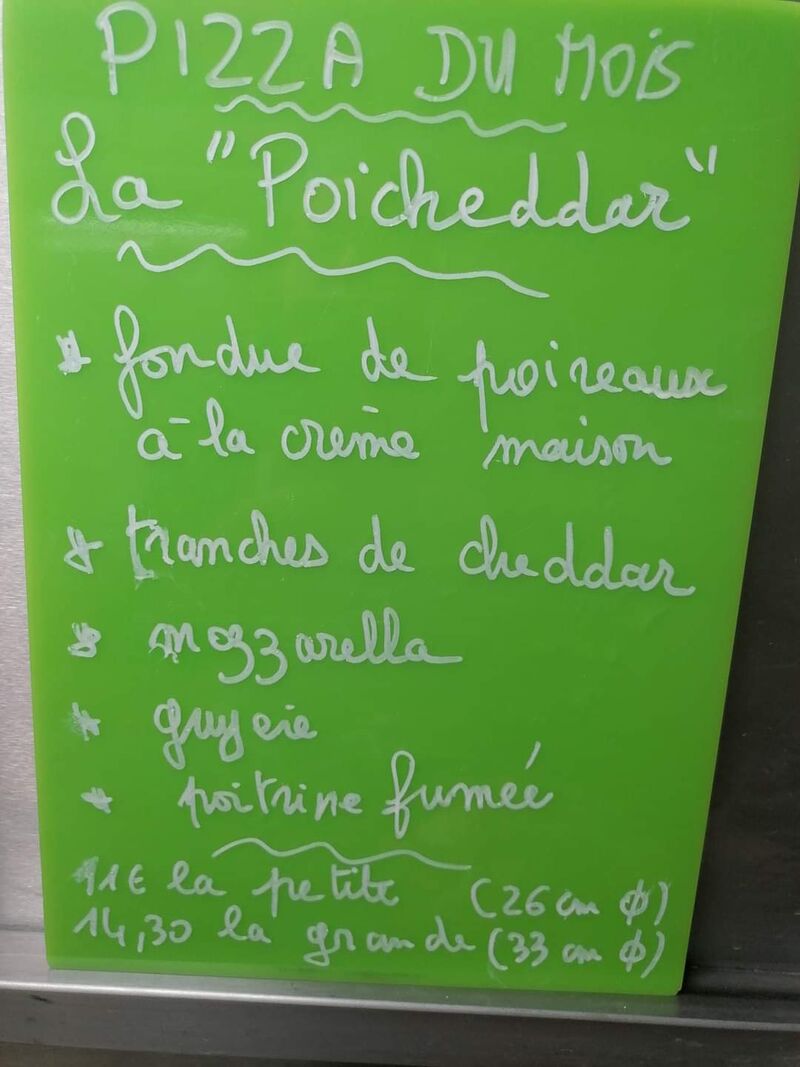 PIZZA DU MOIS
La "Poicheddar"
* fondue de poireaux
à la crème maison
* tranches de cheddar
* mozzarella
* gruyere
* poitrine fumée
11€ la petite (26 cm ϕ)
14,30 la grande (33 cm ϕ)